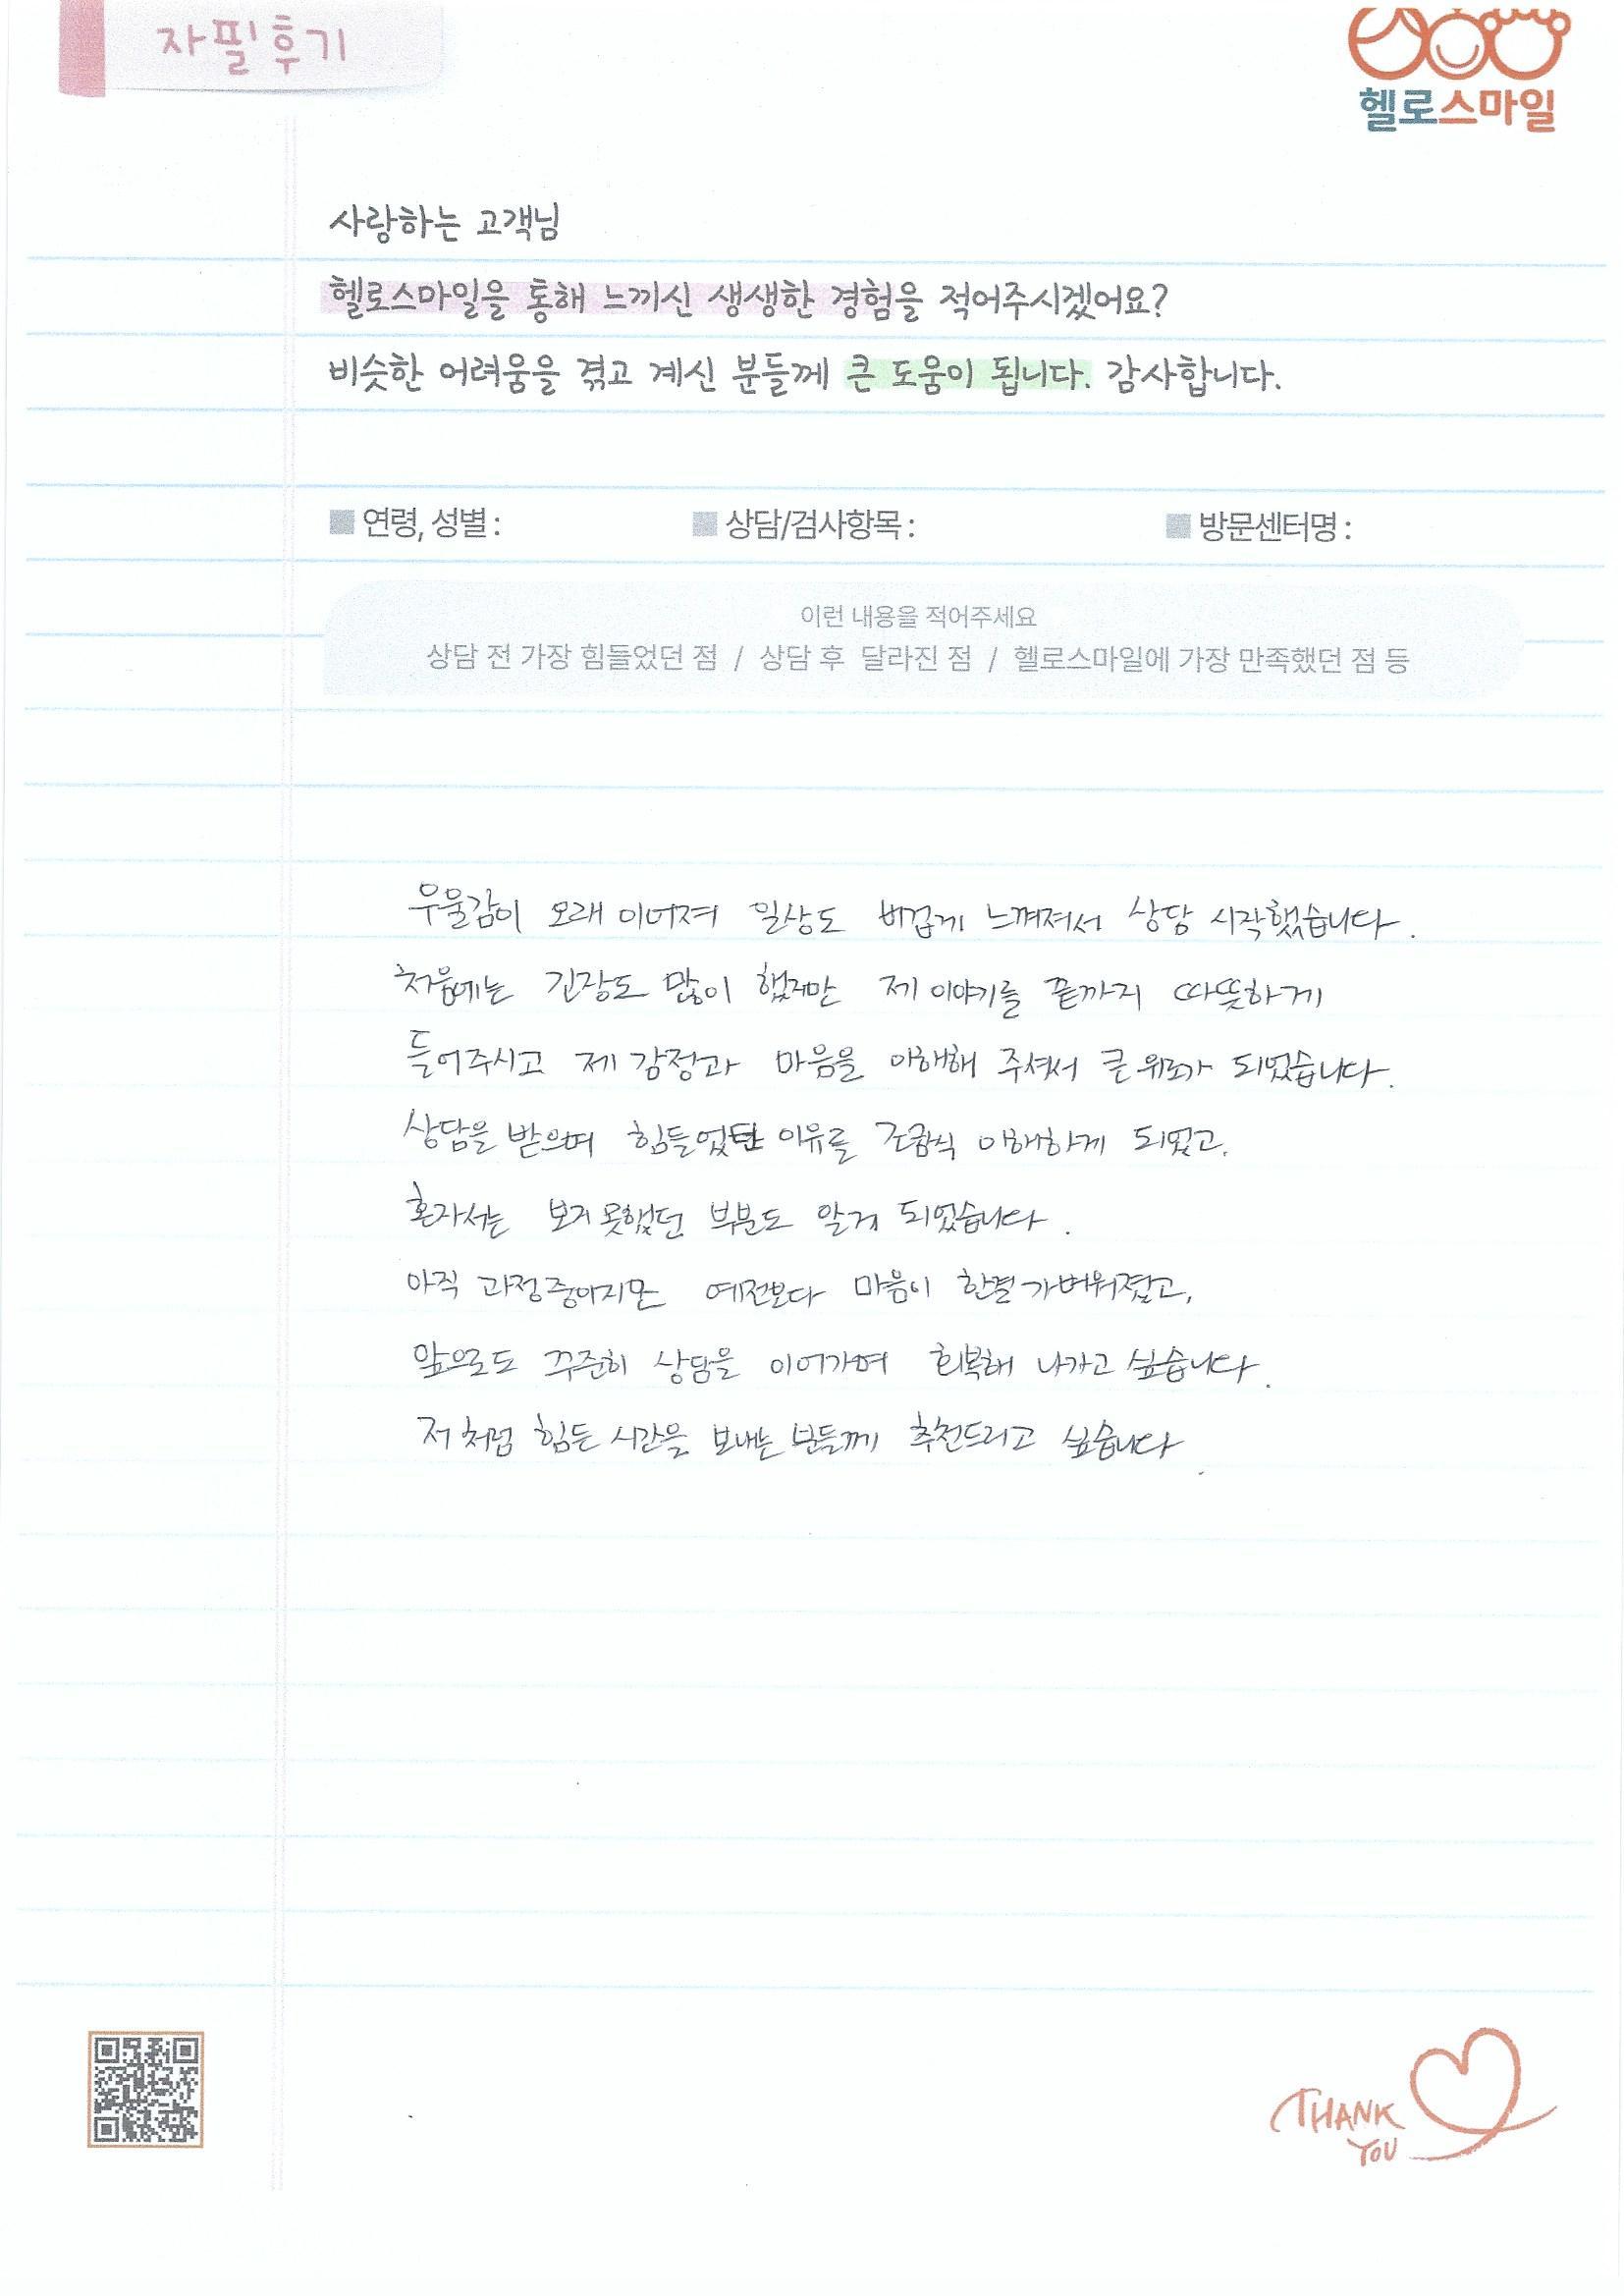 자필후기
헬로스마일
사랑하는 고객님
헬로스마일을 통해 느끼신 생생한 경험을 적어주시겠어요?
비슷한 어려움을 겪고 계신 분들께 큰 도움이 됩니다. 감사합니다.
■ 연령, 성별 : ■ 상담/검사항목 : ■ 방문센터명 :
이런 내용을 적어주세요
상담 전 가장 힘들었던 점 / 상담 후 달라진 점 / 헬로스마일에 가장 만족했던 점 등
우울감이 오래 이어져 일상도 버겁게 느껴져서 상담 시작했습니다.
처음에는 긴장도 많이 했지만 제 이야기를 끝까지 따뜻하게
들어주시고 제 감정과 마음을 이해해 주셔서 큰 위로가 되었습니다.
상담을 받으며 힘들었던 이유를 조금씩 이해하게 되었고,
혼자서는 보지 못했던 부분도 알게 되었습니다.
아직 과정중이지만 예전보다 마음이 한결 가벼워졌고,
앞으로도 꾸준히 상담을 이어가며 회복해 나가고 싶습니다.
저처럼 힘든 시간을 보내는 분들께 추천드리고 싶습니다.
THANK
YOU